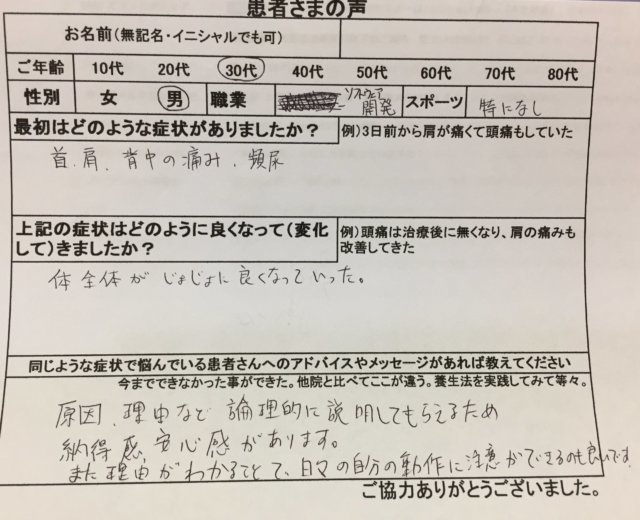 患者さまの声
お名前(無記名・イニシャルでも可)
ご年齢 10代 20代 30代 40代 50代 60代 70代 80代
性別 女 男 職業 ソフトウェア開発 スポーツ 特になし
最初はどのような症状がありましたか? 例)3日前から肩が痛くて頭痛もしていた
首、肩、背中の痛み、頻尿
上記の症状はどのように良くなって(変化 例)頭痛は治療後に無くなり、肩の痛みも
して)きましたか? 改善してきた
体全体がじょじょに良くなっていった。
同じような症状で悩んでいる患者さんへのアドバイスやメッセージがあれば教えてください
今までできなかった事ができた。他院と比べてここが違う。養生法を実践してみて等々。
原因、理由など論理的に説明してもらえるため
納得感、安心感があります。
また理由がわかることで、日々の自分の動作に注意ができるのも良いです
ご協力ありがとうございました。